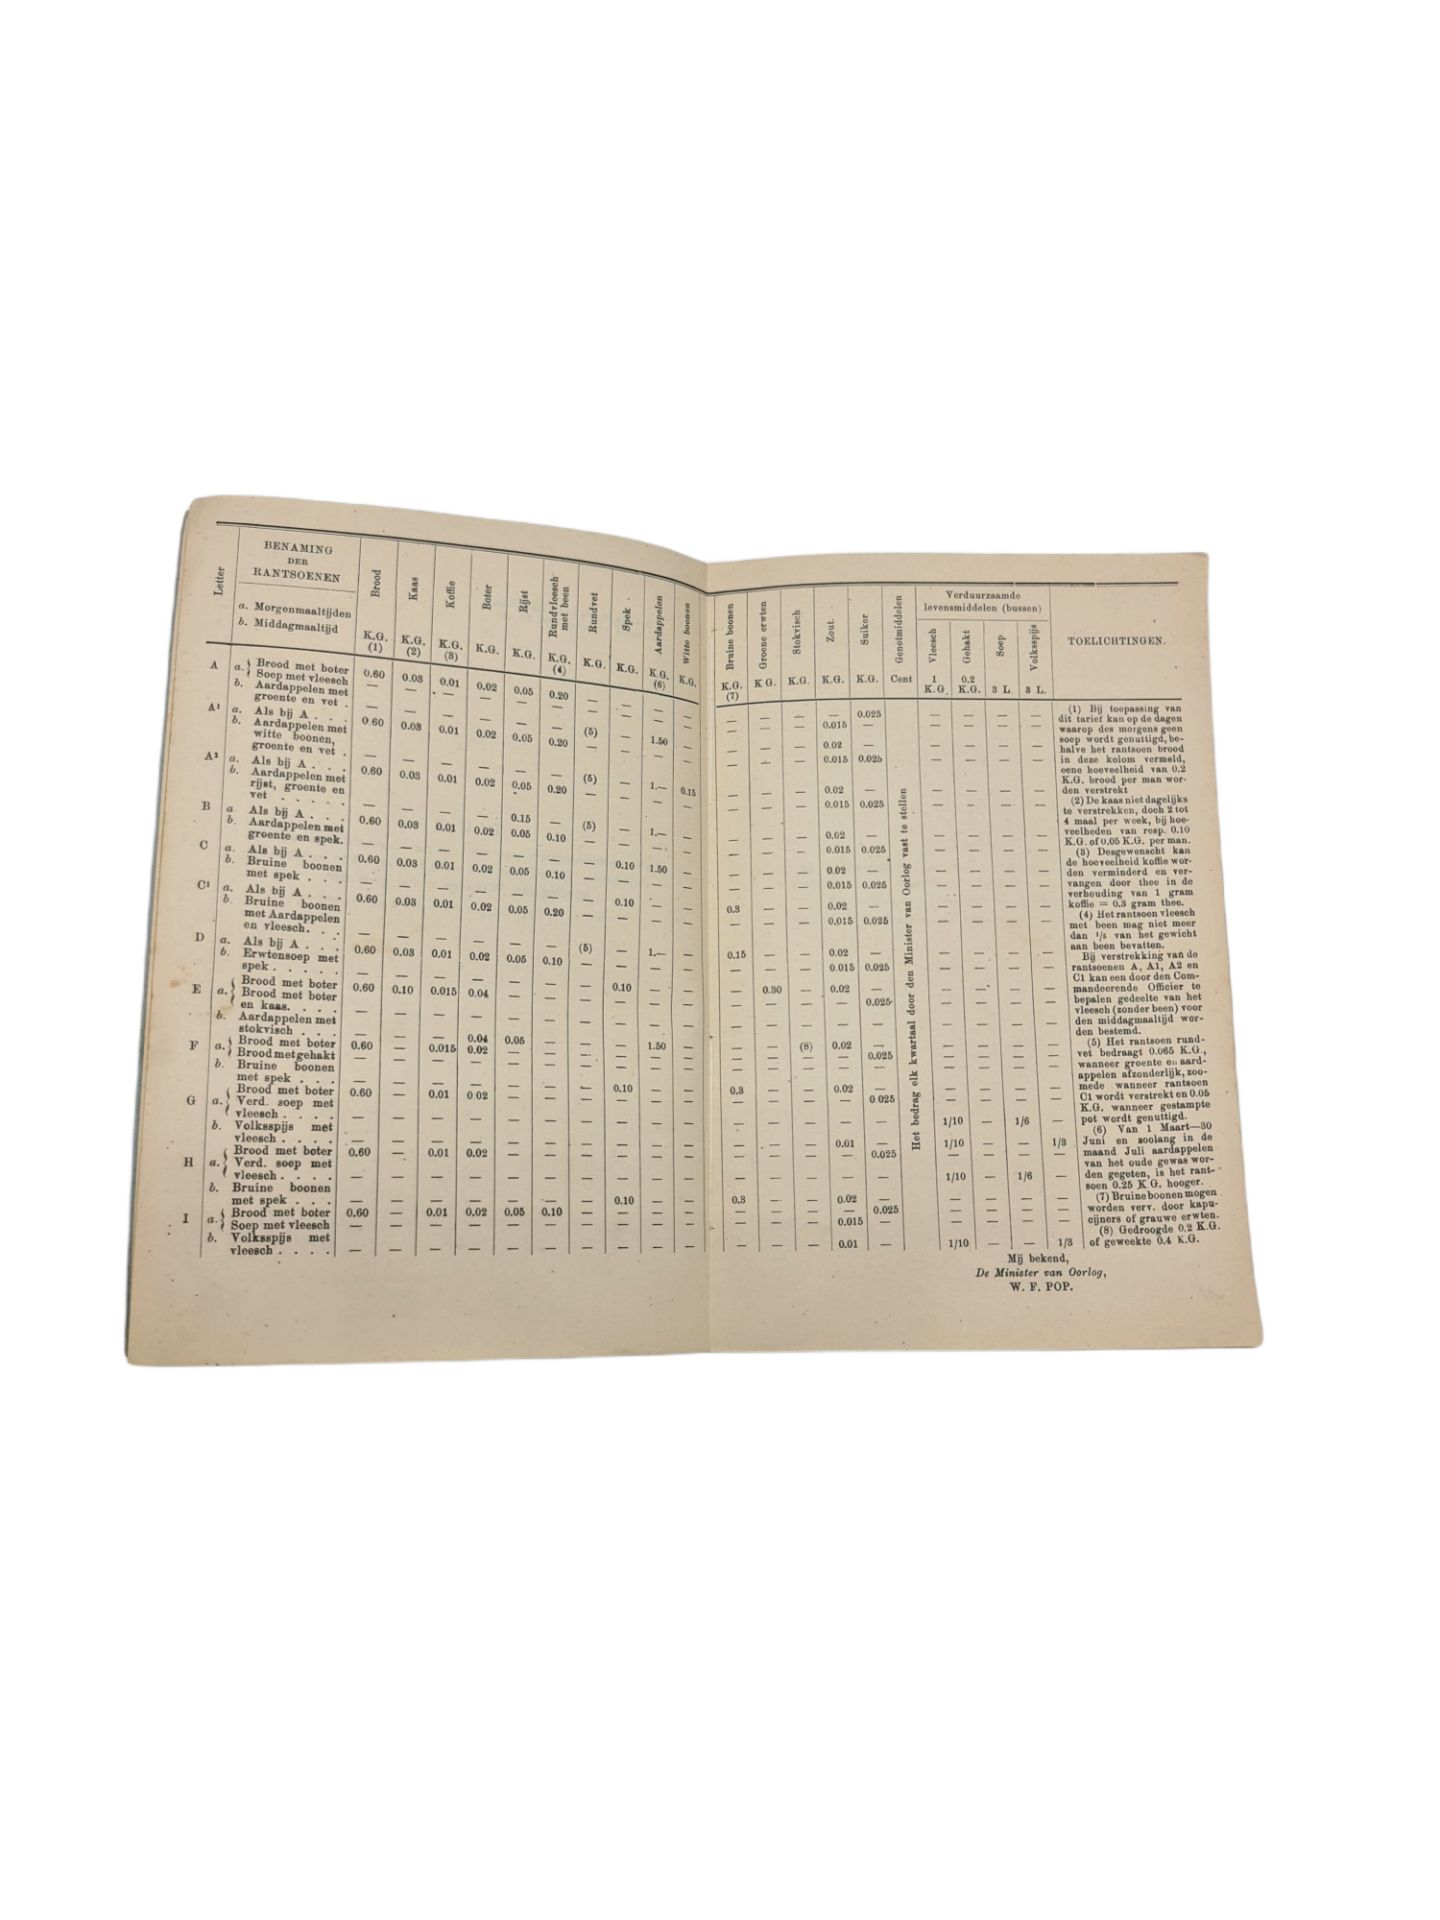 Letter
BENAMING
DER
RANTSOENEN
a. Morgenmaaltijden
b. Middagmaaltijd
Brood K.G. (1)
Kaas K.G. (2)
Koffie K.G. (3)
Boter K.G.
Rijst K.G.
Rundvleesch met been K.G. (4)
Rundvet K.G.
Spek K.G.
Aardappelen K.G. (6)
Witte boonen K.G.
Bruine boonen K.G. (7)
Groene erwten K G.
Stokvisch K.G.
Zout. K.G.
Suiker K.G.
Genotmiddelen Cent
Verduurzaamde
levensmiddelen (bussen)
Vleesch 1 K.G.
Gehakt 0.2 K.G.
Soep 3 L.
Volksspijs 3 L.
TOELICHTINGEN.
A a. Brood met boter 0.60 0.03 0.01 0.02 0.05 0.20 — — — — — — — — 0.025 — — — —
Soep met vleesch — — — — — — — — — — — — — 0.015 — — — — —
b. Aardappelen met
groente en vet . — — — — — — (5) — 1.50 — — — — 0.02 — — — — —
A¹ a. Als bij A . . . 0.60 0.03 0.01 0.02 0.05 0.20 — — — — — — — 0.015 0.025 — — — —
b. Aardappelen met
witte boonen,
groente en vet . — — — — — — (5) — 1.— 0.15 — — — 0.02 — — — — —
A² a. Als bij A . . . 0.60 0.03 0.01 0.02 0.05 0.20 — — — — — — — 0.015 0.025 — — — —
b. Aardappelen met
rijst, groente en
vet . . . . . — — — — 0.15 — (5) — 1.— — — — — 0.02 — — — — —
B a Als bij A . . . 0.60 0.03 0.01 0.02 0.05 0.10 — — — — — — — 0.015 0.025 — — — —
b. Aardappelen met
groente en spek. — — — — — — — 0.10 1.50 — — — — 0.02 — — — — —
C a. Als bij A . . . 0.60 0.03 0.01 0.02 0.05 0.10 — — — — — — — 0.015 0.025 — — — —
b. Bruine boonen
met spek . . . — — — — — — — 0.10 — — 0.3 — — 0.02 — — — — —
C¹ a. Als bij A . . . 0.60 0.03 0.01 0.02 0.05 0.20 — — — — — — — 0.015 0.025 — — — —
b Bruine boonen
met Aardappelen
en vleesch. . . — — — — — — (5) — 1.— — 0.15 — — 0.02 — — — — —
D a. Als bij A . . . 0.60 0.03 0.01 0.02 0.05 0.10 — — — — — — — 0.015 0.025 — — — —
b. Erwtensoep met
spek . . . . . — — — — — — — 0.10 — — — 0.30 — 0.02 — — — — —
E a. Brood met boter 0.60 0.10 0.015 0.04 — — — — — — — — — — 0.025 — — — —
Brood met boter
en kaas. . . . — — — — — — — — — — — — — — — — — — —
b. Aardappelen met
stokvisch . . . — — — 0.04 0.05 — — — 1.50 — — — (8) 0.02 — — — — —
F a. Brood met boter 0.60 — 0.015 0.02 — — — — — — — — — — 0.025 — — — —
Brood met gehakt — — — — — — — — — — — — — — —
b. Bruine boonen
met spek . . . — — — — — — — 0.10 — — 0.3 — — 0.02 — — — — —
G a. Brood met boter 0.60 — 0.01 0.02 — — — — — — — — — — 0.025 — — — —
Verd. soep met
vleesch . . . . — — — — — — — — — — — — — — — 1/10 — 1/6 —
b. Volksspijs met
vleesch . . . . — — — — — — — — — — — — — 0.01 — 1/10 — — 1/3
H a. Brood met boter 0.60 — 0.01 0.02 — — — — — — — — — — 0.025 — — — —
Verd. soep met
vleesch . . . . — — — — — — — — — — — — — — — 1/10 — 1/6 —
b. Bruine boonen
met spek . . . — — — — — — — 0.10 — — 0.3 — — 0.02 — — — — —
I a. Brood met boter 0.60 — 0.01 0.02 0.05 0.10 — — — — — — — — 0.025 — — — —
Soep met vleesch — — — — — — — — — — — — — 0.015 — — — — —
b. Volksspijs met
vleesch . . . . — — — — — — — — — — — — — 0.01 — 1/10 — — 1/3
Het bedrag elk kwartaal door den Minister van Oorlog vast te stellen
(1) Bij toepassing van
dit tarief kan op de dagen
waarop des morgens geen
soep wordt genuttigd, be-
halve het rantsoen brood
in deze kolom vermeld,
eene hoeveelheid van 0.2
K.G. brood per man wor-
den verstrekt
(2) De kaas niet dagelijks
te verstrekken, doch 2 tot
4 maal per week, bij hoe-
veelheden van resp. 0.10
K.G. of 0,05 K.G. per man.
(3) Desgewenscht kan
de hoeveelheid koffie wor-
den verminderd en ver-
vangen door thee in de
verhouding van 1 gram
koffie = 0.3 gram thee.
(4) Het rantsoen vleesch
met been mag niet meer
dan ¹/₅ van het gewicht
aan been bevatten.
Bij verstrekking van de
rantsoenen A, A1, A2 en
C1 kan een door den Com-
mandeerende Officier te
bepalen gedeelte van het
vleesch (zonder been) voor
den middagmaaltijd wor-
den bestemd.
(5) Het rantsoen rund-
vet bedraagt 0.065 K.G.,
wanneer groente en aard-
appelen afzonderlijk, zoo-
mede wanneer rantsoen
C1 wordt verstrekt en 0.05
K.G. wanneer gestampte
pot wordt genuttigd.
(6) Van 1 Maart—30
Juni en zoolang in de
maand Juli aardappelen
van het oude gewas wor-
den gegeten, is het rant-
soen 0.25 K G. hooger.
(7) Bruine boonen mogen
worden verv. door kapu-
cijners of grauwe erwten.
(8) Gedroogde 0.2 K.G.
of geweekte 0.4 K.G.
Mij bekend,
De Minister van Oorlog,
W. F. POP.